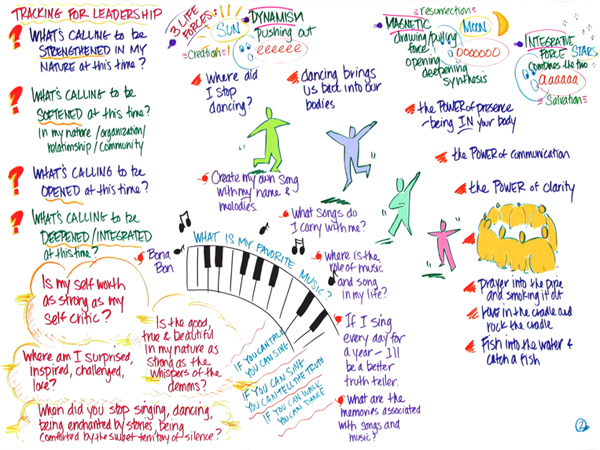 TRACKING FOR LEADERSHIP
? WHAT'S CALLING to be
STRENGTHENED IN MY
NATURE at this time?
? WHAT'S CALLING to be
SOFTENED at this time?
in my nature / organization/
relationship / community
? WHAT'S CALLING to be
OPENED at this time?
? WHAT'S CALLING to be
DEEPENED/INTEGRATED
at this time?
Is my self worth
as strong as my
self critic?
Is the good,
true & beautiful
in my nature as
strong as the
whispers of the
demons?
Where am I surprised,
inspired, challenged,
love?
When did you stop singing, dancing,
being enchanted by stories, being
comforted by the sweet territory of silence?
3 LIFE
FORCES:
SUN
Creation
DYNAMISM
Pushing out
eeeeee
Where did
I stop
dancing?
dancing brings
us back into our
bodies
Create my own song
with my name &
melodies.
What songs do
I carry with me?
Bona
Bon
WHAT IS MY FAVORITE MUSIC?
where is the
role of music
and song
in my life?
If I sing
every day for
a year - I'll
be a better
truth teller.
What are the
memories associated
with songs and
music?
IF YOU CAN TALK
YOU CAN SING
IF YOU CAN SING
YOU CAN TELL THE TRUTH
IF YOU CAN WALK
YOU CAN DANCE
resurrection
MAGNETIC
drawing/pulling
force
opening
deepening
synthesis
MOON
ooooooo
INTEGRATIVE
FORCE STARS
combines the two
aaaaaa
Salvation
the POWER of presence
~being IN your body
the POWER of communication
the POWER of clarity
Prayer into the pipe
and smoking it out
in the cradle and
rock the cradle
Fish into the water &
catch a fish
2